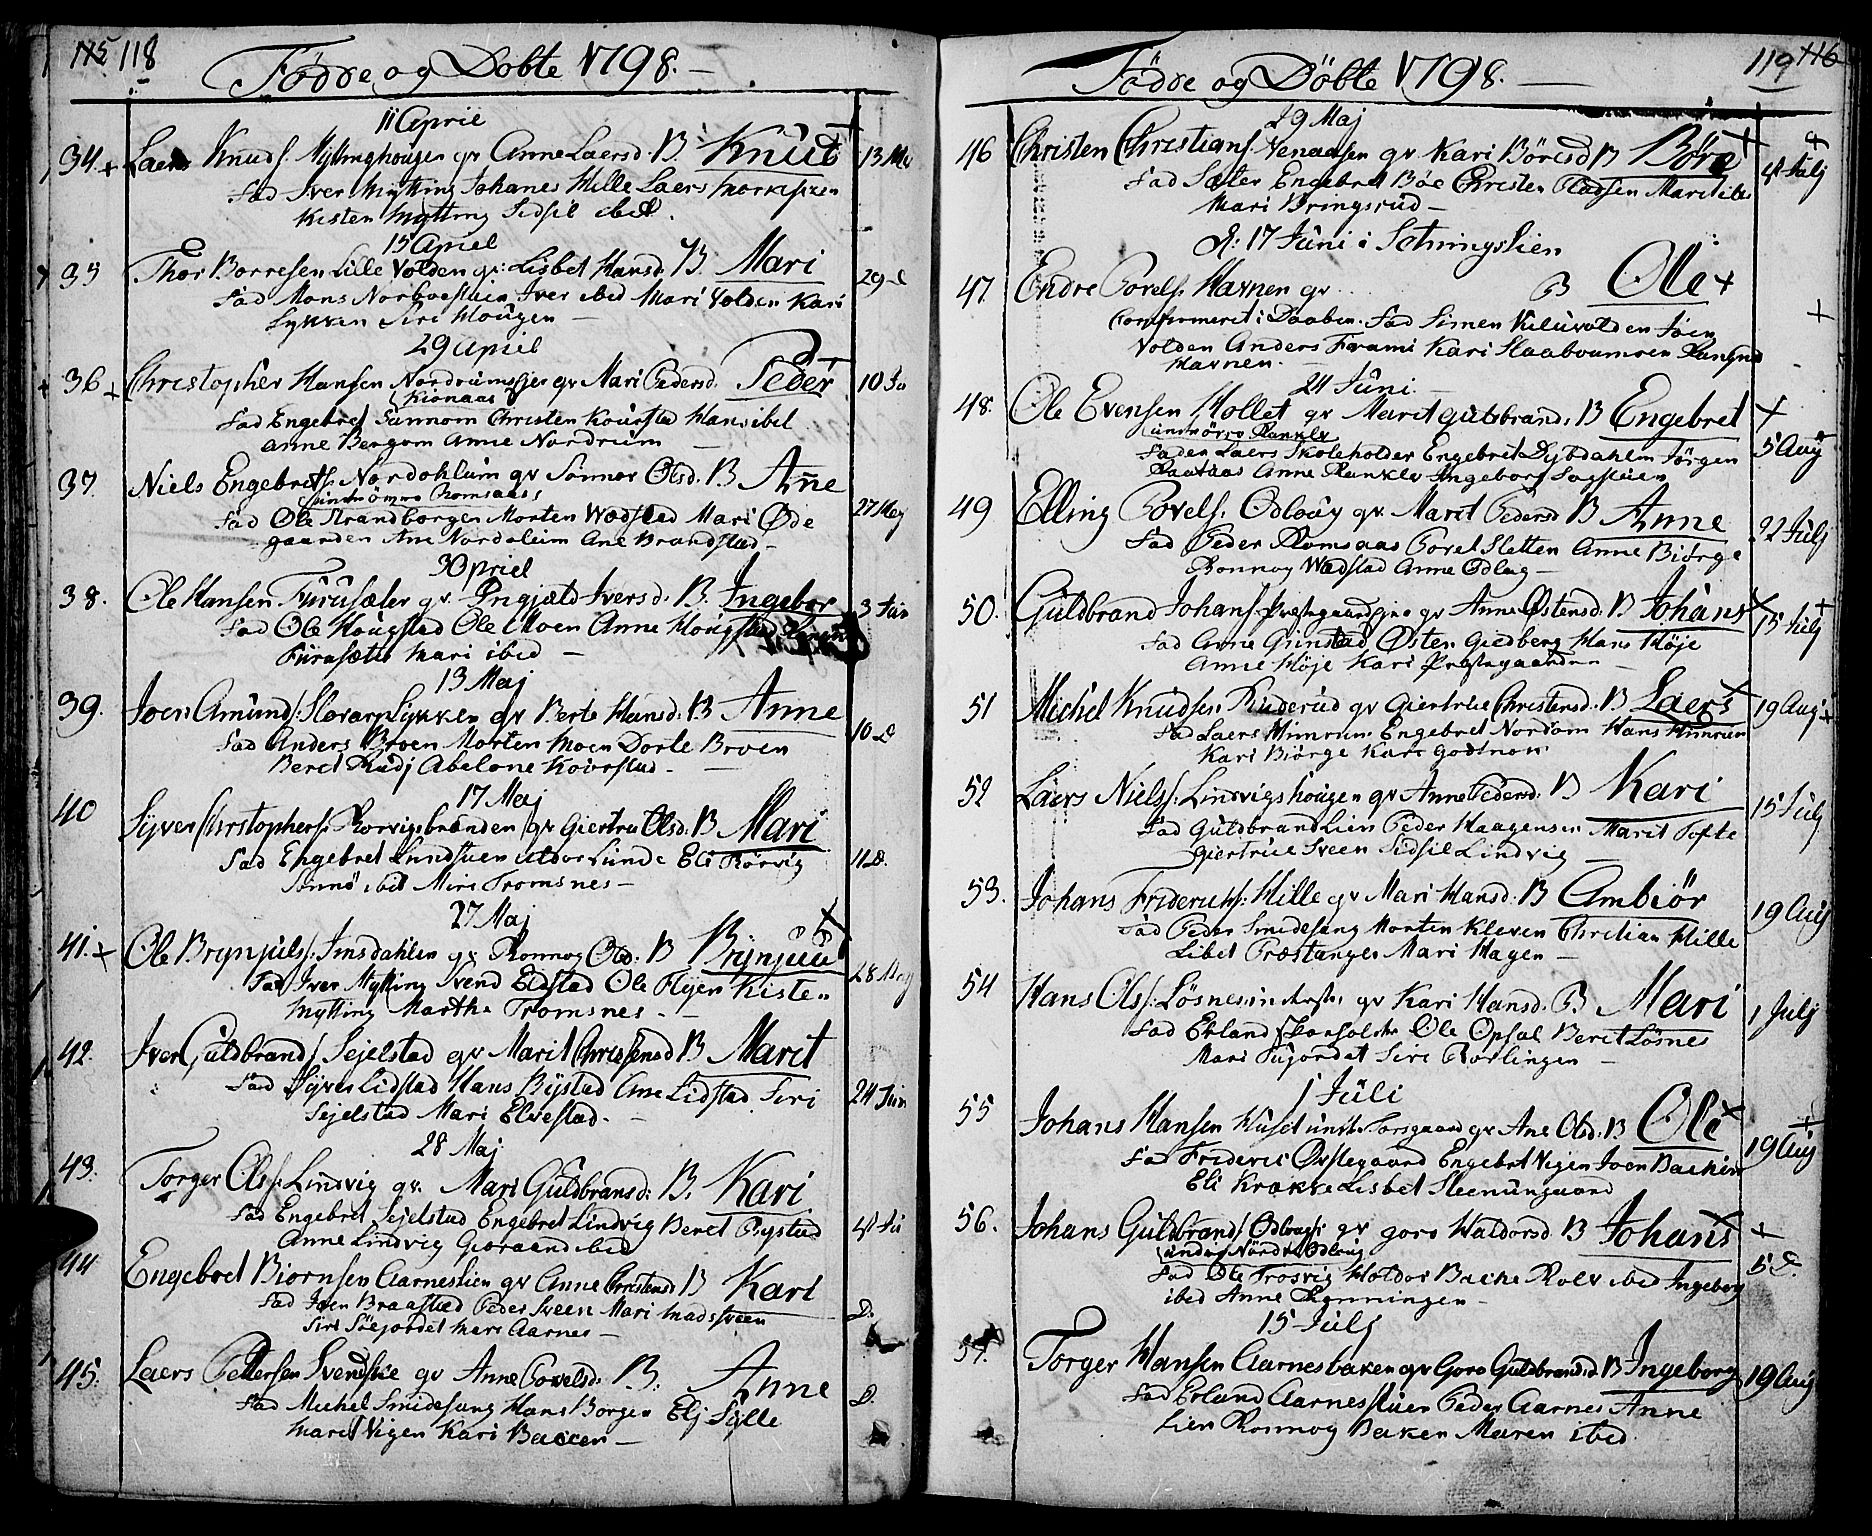 115 118
Födde og Döbte 1798.
11 April
34 + Laers Knuds. Myttinghougen gv Anne Laersd. B. Knut + 13 Me
Fad Iver Mytting Johanes Hille Laers
Kisten Mytting Sidsil ibid.
15 April
35 Thor Borresen Lille Volden gv: Lisbet Hansd. B. Mari 29 d
Fad Mons Iver ibid Mari Volden Kari
Lykken Siri Hougen —
29 April
36 + Christopher Hansen Nordrumsejer gv Mari Pedersd. Peder 10 Ju
Kionaas
Fad Engebret Sunnom Christen Kourstad Hans ibet
Anne Bergom Anne Nordrum —
37 Niels Engebrets. Nordohlum gv Sönnov Olsd. B Anne 27 Mey
Romsaas
Fad Ole Strandborgen Morten Wedstad Mari Öde
gaarden Ane Nordolum Ane Brandstad —
30 priel
38. Ole Hansen Furusæter gv. Ingjæld Iversd. B. Ingebor 3 Jun
Fad Ole Hougstad Ole Moen Anne Hougstad
Furusæter Mari ibid —
13 Maj
39. Joen Amunds. Lykken gv Berte Hansd. B Anne 10 D
Fad Anders Broen Morten Moen Dorte Broen
Beret Rudj Abelone Kourstad —
17 Maj
40 Syver Christophers. Rorvigsbranden gv Giertru Olsd. B Mari 11 D.
Fad Engebret Lundstuen Lunde Eli Rörvig
Sönnö ibid Mari Tromsnes —
27 Maj
41. + Ole Brynjuls. Imsdahlen gv Ronnog Old: B Brynjuul + 28 Mey
Fad Iver Mytting Svend Eidstad Ole Flyen Kisten
Mytting Marthe Tromsnes. —
42. Iver Guldbrands. Sejelstad gv Marit Christensd B Marit 24 Jun
Fad Syver Lidstad Hans Bystad Ane Lidstad Siri
Sejelstad Mari Elvestad. —
28 Maj
43. Torger Ols. Lindvig gv. Mari Guldbransd: B. Kari
Fad Engebret Sejelstad Engebret Lindvig Beret Bystad
Anne Lindvig ibid
44 Engebret Biornsen Aarneslien gv Anne Christensd B Kari D.
Fad Joen Braastad Peder Sveen Mari Madssveen
Siri Söejordet Mari Aarnes —
45. Laers Pettersen Svendslie gv Anne Povelsd: B. Anne D.
Fad Michel Smidesang Hans Borgen Elj Sylle
Marit Vigen Kari Baccen —
119 116
Födde og Döbte 1798. —
29 Maj
46 Christen Christians. Venaasen gv Kari Böresd B Böre + Julj
Fad Sæter Engebret Böe Christen Pladsen Marit ibd
Mari Bringsrud —
d: 17 Juni i Sollien
47. Endre Povels. Havnen gv B Ole +
Confirmeret: Daaben. Fad Simen Joen
Volden Anders Frami Kari Ragnd
Havnen.
24 Juni
48. Ole Evensen Mollet gv Marit Gulbrand. B Engebret + 5 Aug
Rankle
Faden Laers Skoleholder Engebret Dybdahlen Jörgen
Anne Rankle Ingeborg
49 Elling Povels. Odloug gv. Marit Pedersd B Anne 22 Julj
Fad Peder Romsaas Povel Sletten Anne Biörge
Ronnog Wedstad Anne Odlog —
50. Guldbrand Johans. gv Anne Östensd. B Johans + 15 Julj
Fad Anne Grinstad Östen Giedberg Hans Höje
Anne Höje Kari Præstegaarden —
51 Michel Knudsen Ruderud gv Giertrue Christensd. B Laers + 19 Aug +
Fad Laers Himrum Engebret Nordom Hans Himrum
Kari Biörge Kari
52 Laers Niels. Lindvigshougen gv Anne Pedersd. B Kari 15 Julj
Fad Guldbrand Lien Peder Haagensen Marit Tofte
Giertrue Sveen Sidsil Lindvig —
53. Johans Friderichs. Hille gv Mari Hansd. B Ambiör 19 Aug
Fad Peder Smidesang Morten Kleven Christian Hille
Libet Præstangen Mari Hagen —
54 Hans Ols. gv Kari Hansd. B Mari 1 Julj
Fad Erland Ole Opsal Beret Lösnes
Mari Siri —
1 Juli
55 Johans Hansen Huset gv Ane Olsd. B Ole + 19 Aug
Fad Frideric Engebret Vigen Joen Bachen
Eli Krakke Lisbet
56. Johans Guldbrands. gv goro Haldorsd B Johans + +
under Nordre Odloug 5 D.
Fad Ole Trosvig Holdor Bache Rolv ibid Ingeborg
ibid Anne Rönningen —
15 Julj
57. Torger Hansen Aarnesbaken gv Goro Guldbransd. B Ingeborg 19 Aug
Fad Erland Aarnesstuen Peder Aarnes Anne
Lien Ronnog Baken Maren ibid